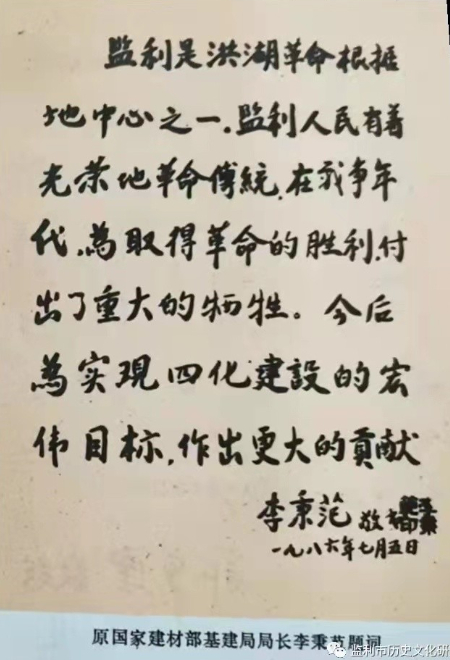 监利是洪湖革命根据
地中心之一.监利人民有着
光荣地革命傳統,在战争年
代,為取得革命的胜利,付
出了重大的牺牲。今后
為实現四化建設的宏
伟目标,作出更大的貢献
李秉范 敬
一九八六年七月五日
原国家建材部基建局局长李秉范题词
监利市历史文化研